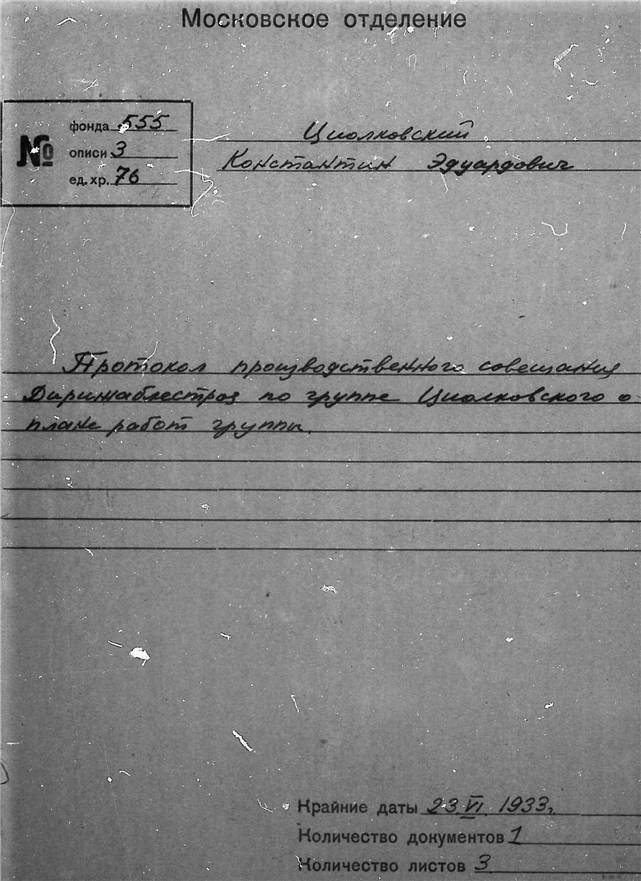 Московское отделение
№
фонда 555
описи 3
ед. хр. 76
Циолковский
Константин Эдуардович
Протокол производственного совещания
Дирижаблестроя по группе Циолковского о
плане работ группы.
Крайние даты 23 VI. 1933г.
Количество документов 1
Количество листов 3